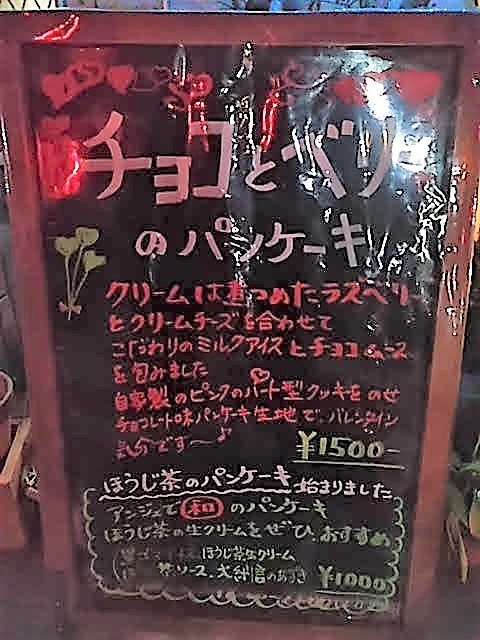 チョコとベリー
のパンケーキ
クリームは煮つめたラズベリー
とクリームチーズを合わせて
こだわりのミルクアイスとチョコムース
を包みました
自家製のピンクのハート型クッキーをのせ
チョコレート味パンケーキ生地で、バレンタイン
気分です〜♪
¥1500-
ほうじ茶のパンケーキ始まりました
アンジェで和のパンケーキ
ほうじ茶の生クリームをぜひ、おすすめ
ほうじ茶生クリーム
茶ソース、大納言のあずき ¥1000